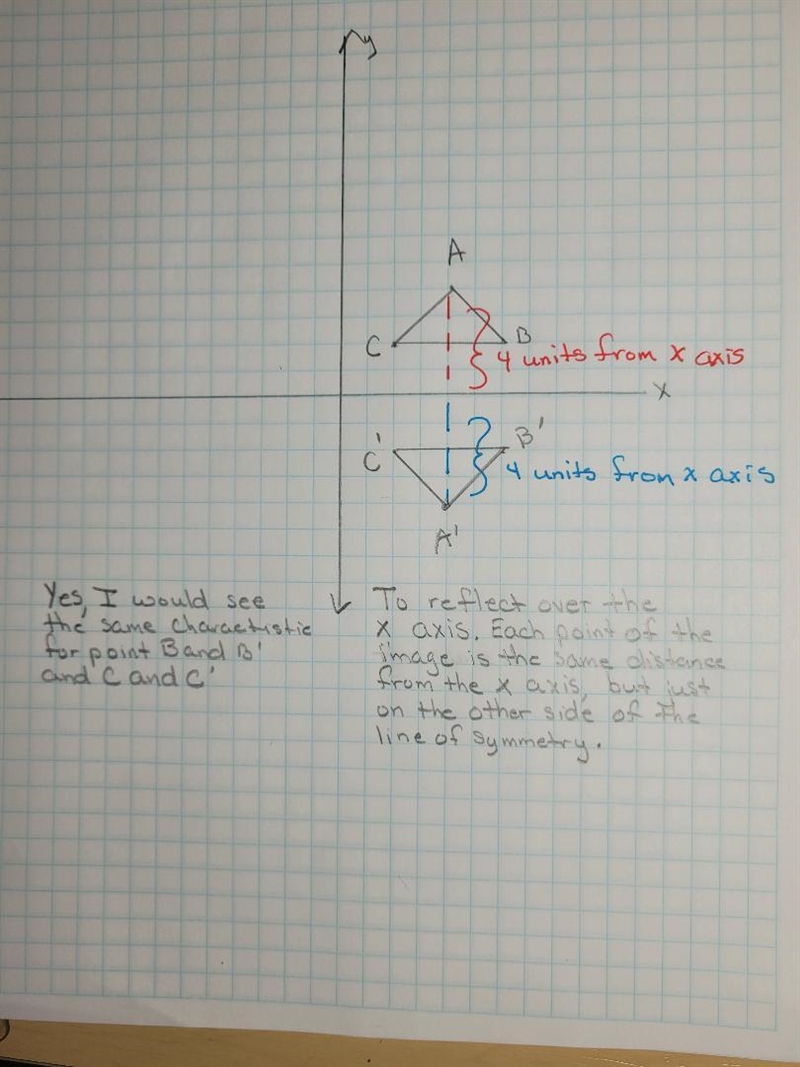 y
A
C
B
4 units from x axis
x
C'
B'
4 units from x axis
A'
Yes, I would see
the same charactistic
for point B and B'
and C and C'
To reflect over the
x axis. Each point of the
image is the same distance
from the x axis, but just
on the other side of the
line of symmetry.